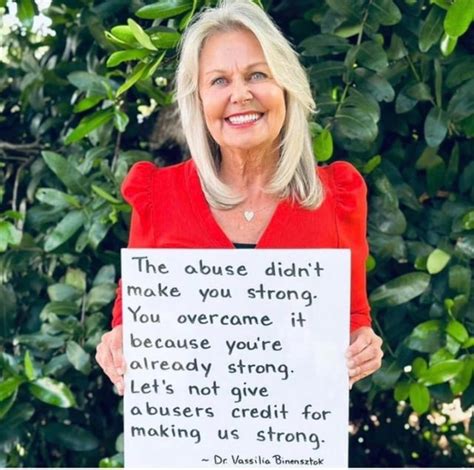 The abuse didn't
make you strong.
You overcame it
because you're
already strong.
Let's not give
abusers credit for
making us strong.
~ Dr. Vassilia Binensztok